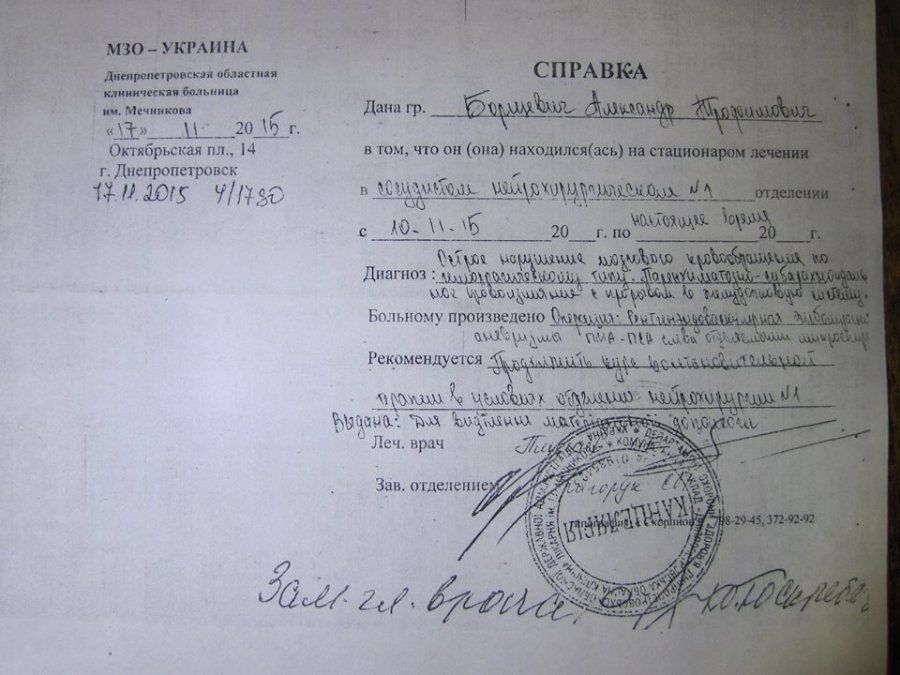 МЗО – УКРАИНА
Днепропетровская областная
клиническая больница
им. Мечникова
«17» 11 2015г.
Октябрьская пл., 14
г. Днепропетровск
17.11.2015 4/1780
СПРАВКА
Дана гр. Александр Трофимович
в том, что он (она) находился(ась) на стационаром лечении
в сосудистом нейрохирургическом №1 отделении
с 10-11-15 20 г. по настоящее время 20 г.
Диагноз: Острое нарушение мозгового кровообращения по
геморрагическому типу. Паренхиматозно-субарахноидаль
ное кровоизлияние с прорывом в желудочковую систему.
Больному произведено Операция: Рентгенэндоваскулярная эмболизация
аневризмы ПМА-ПСА слева отделяемыми
Рекомендуется Продолжить курс восстановительной
терапии в условиях отделения нейрохирургии №1
Выдана: Для виділення матеріальної допомоги
Леч. врач
Зав. отделением
98-29-45, 372-92-92
КАНЦЕЛЯРІЯ
Зам. гл. врача